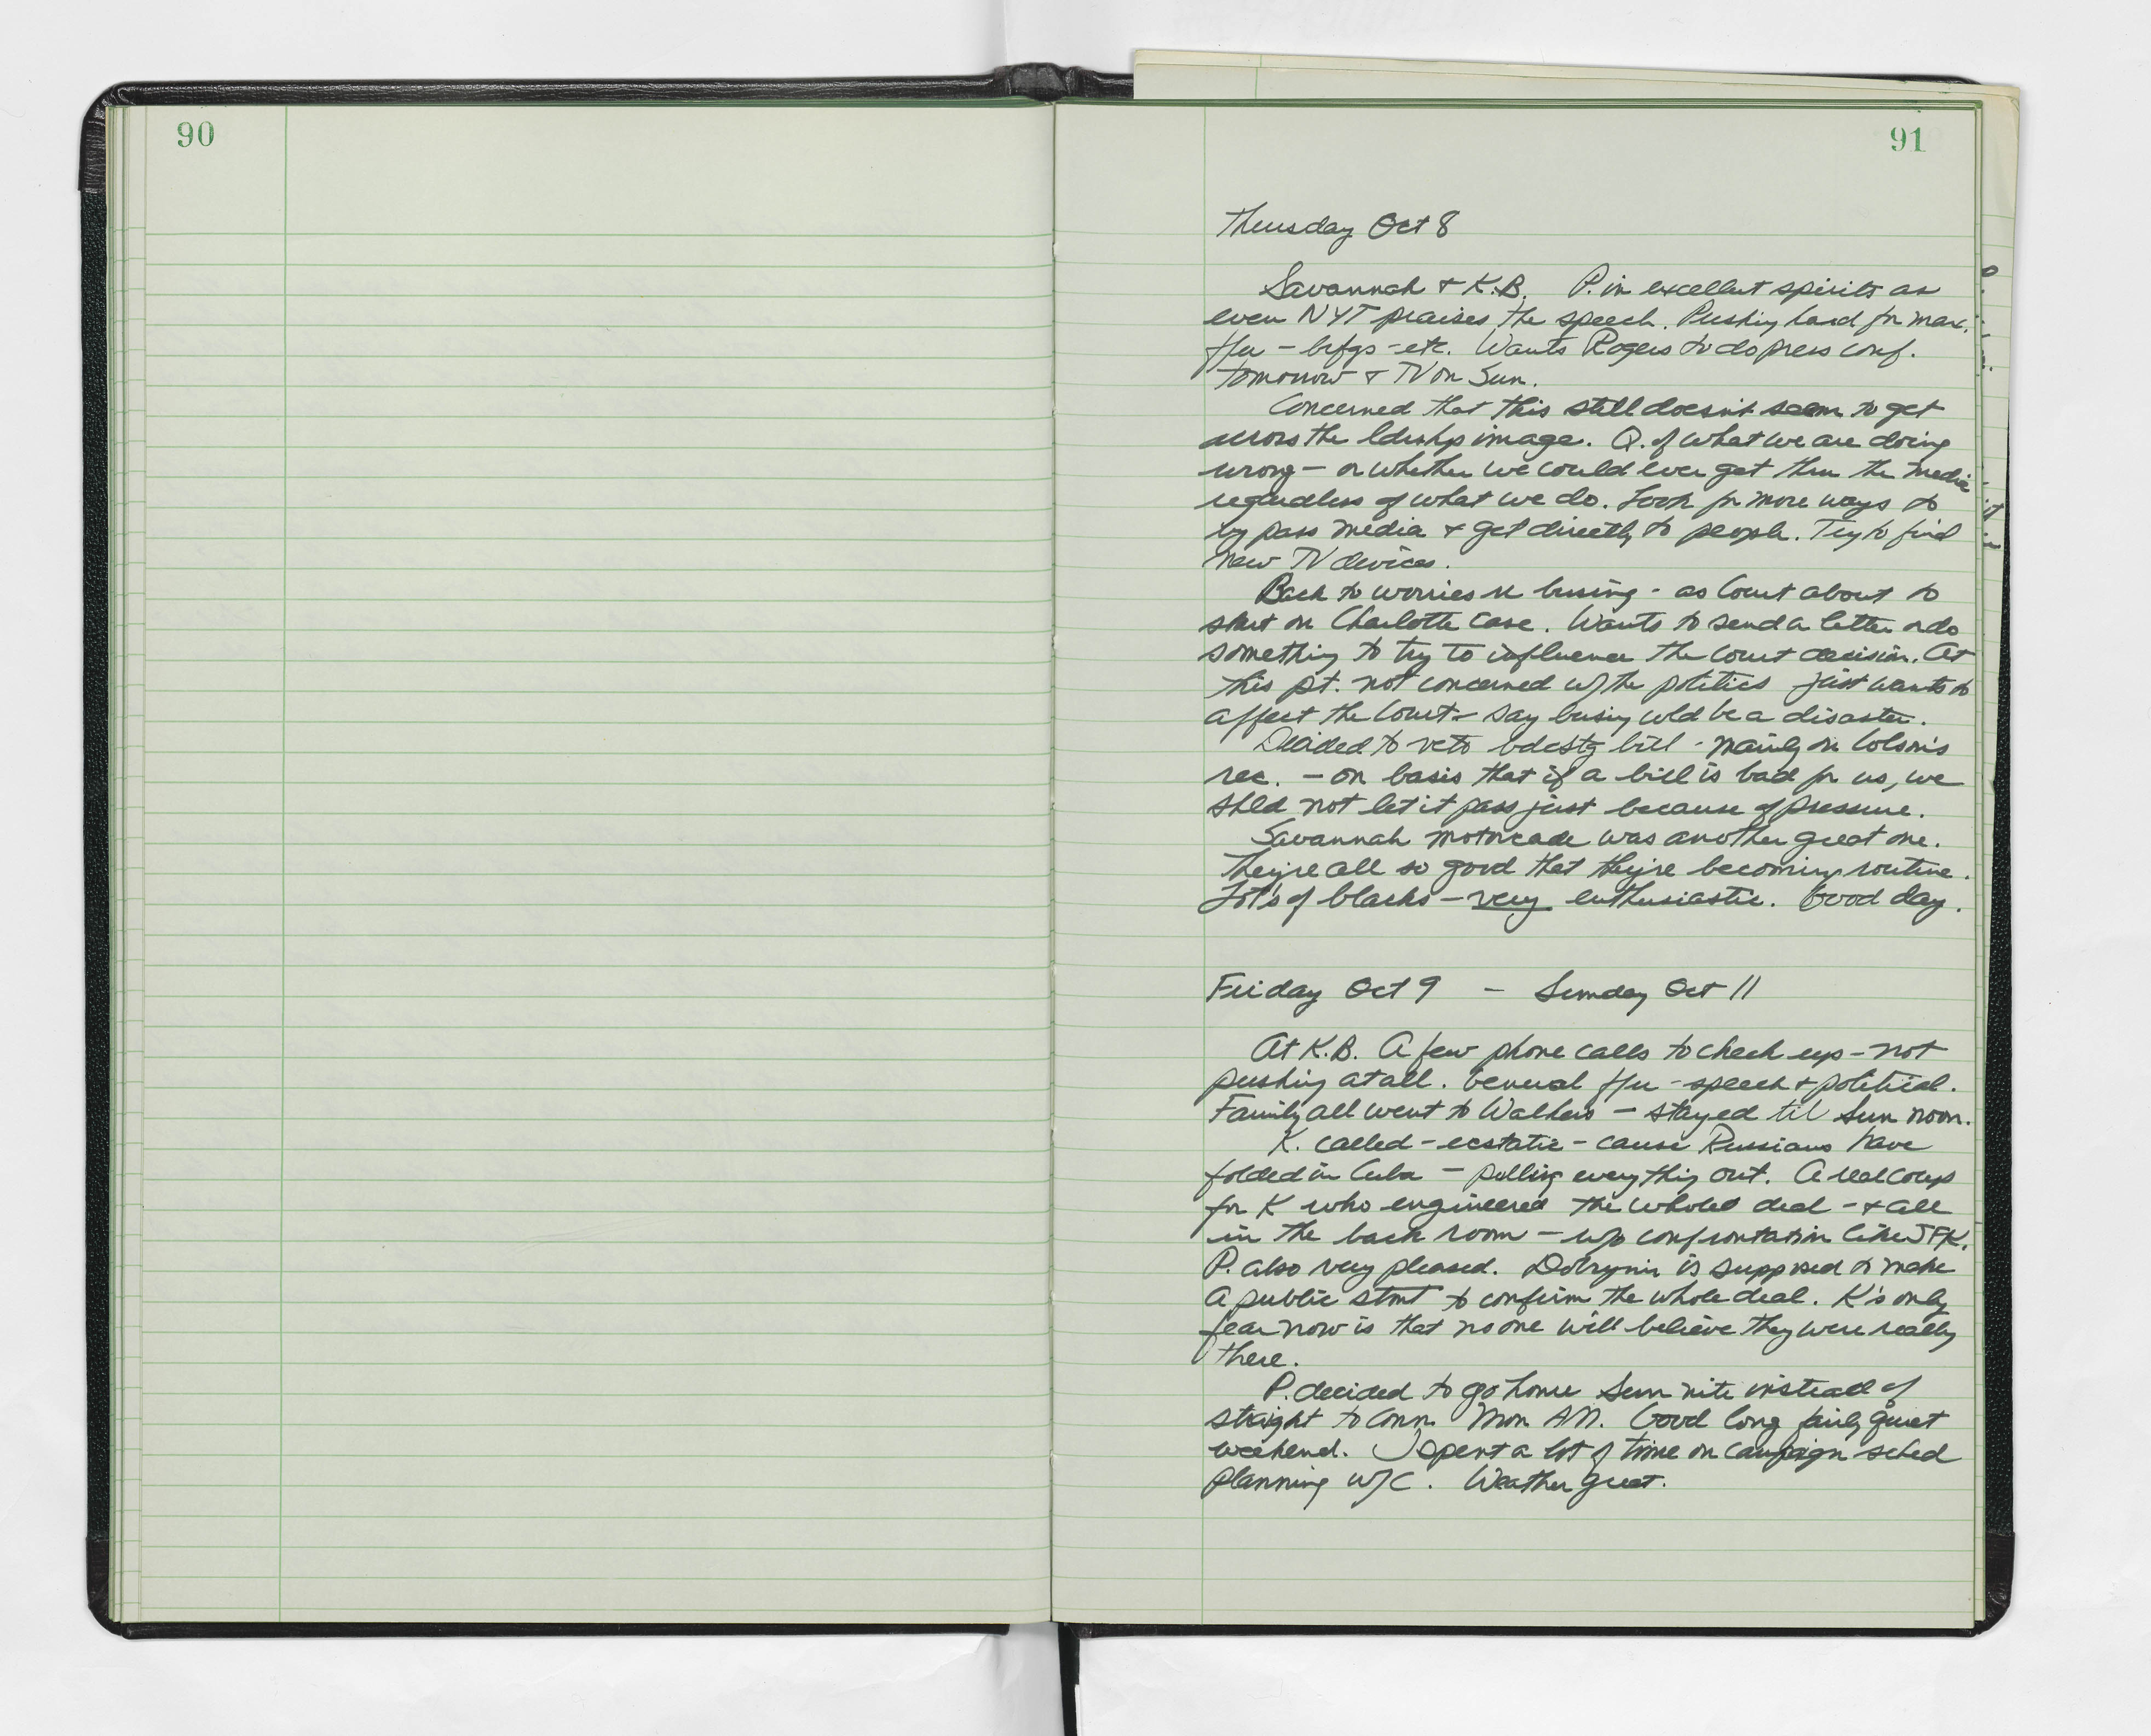 90
91
Thursday Oct 8
Savannah & K.B. P. in excellent spirits as
even NYT praises the speech. Pushing hard for max.
f/u - brfgs - etc. Wants Rogers to do press conf.
tomorrow & TV on Sun.
Concerned that this still doesn't seem to get
across the ldrshp image. Q. of what we are doing
wrong - or whether we could ever get thru the media
regardless of what we do. Look for more ways to
by pass media & get directly to people. Try to find
new TV devices.
Back to worries re busing - as Court about to
start on Charlotte case. Wants to send a letter or do
something to try to influence the Court decision. At
this pt. not concerned w/ the politics just wants to
affect the Court - say busing wld be a disaster.
Decided to veto bdcstg bill - mainly on Colson's
rec. - on basis that if a bill is bad for us, we
shld not let it pass just because of pressure.
Savannah motorcade was another great one.
They're all so good that they're becoming routine.
Lot's of blacks - very enthusiastic. Good day.
Friday Oct 9 - Sunday Oct 11
At K.B. A few phone calls to check up - not
pushing at all. General f/u - speech & political.
Family all went to Walkers - stayed til Sun noon.
K. called - ecstatic - cause Russians have
folded in Cuba - pulling everything out. A real coup
for K who engineered the whole deal - & all
in the back room - w/o confrontation like JFK.
P. also very pleased. Dobrynin is supposed to make
a public stmt to confirm the whole deal. K's only
fear now is that no one will believe they were really
there.
P. decided to go home Sun nite instead of
straight to Conn. Mon AM. Good long fairly quiet
weekend. I spent a lot of time on campaign sched
planning w/C. Weather great.